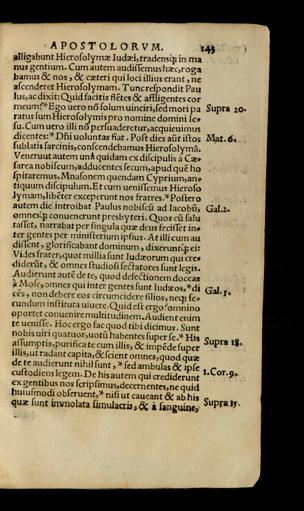 APOSTOLORVM. 143
alligabunt Hierosolymæ Iudæi, tradensq́; in ma
nus gentium. Cum autem audissemus hæc, roga
bamus & nos, & cæteri qui loci illius erant, ne
ascenderet Hierosolymam. Tunc respondit Pau
lus, ac dixit: Quid facitis flẽtes & affligentes cor
meum?* Ego uero nõ solum uinciri, sed mori pa Supra 20.
ratus sum Hierosolymis pro nomine domini Ie-
su. Cum uero illi nõ persuaderetur, acquieuimus
dicentes:* Dñi uoluntas fiat. Post dies aũt istos Mat. 6.
sublatis sarcinis, conscendebamus Hierosolymã.
Venerunt autem unà quidam ex discipulis à Cæ
sarea nobiscum, adducentes secum, apud quẽ ho
spitaremus, Mnasonem quendam Cyprium, an-
tiquum discipulum. Et cum uenissemus Hieroso
lymam, libẽter exceperunt nos fratres.* Postero
autem die introibat Paulus nobiscũ ad Iacobũ, Gal. 2.
omnesq́; conuenerunt presbyteri. Quos cũ salu
tasset, narrabat per singula quæ deus fecisset in-
ter gentes per ministerium ipsius. At illi cum au
dissent, glorificabant dominum, dixeruntq́; ei:
Vides frater, quot millia sunt Iudæorum qui cre-
diderũt, & omnes studiosi sectatores sunt legis.
Audierunt autẽ de te, quod defectionem doceas
à Mose, omnes qui inter gentes sunt Iudæos,* di
cẽs, non debere eos circumcidere filios, neq; se- Gal. 5.
cundum instituta uiuere. Quid est ergo? omnino
oportet conuenire multitudinem. Audient enim
te uenisse. Hoc ergo fac quod tibi dicimus. Sunt
nobis uiri quatuor, uotũ habentes super se.* His
assumptis, purifica te cum illis, & impẽde super Supra 18.
illis, ut radant capita, & scient omnes, quod quæ
de te audierunt nihil sunt,* sed ambulas & ipse
custodiens legem. De his autem qui crediderunt 1. Cor. 9.
ex gentibus nos scripsimus, decernentes, ne quid
huiusmodi obseruent,* nisi ut caueant & ab his
quæ sunt immolata simulacris, & à sanguine, Supra 15.